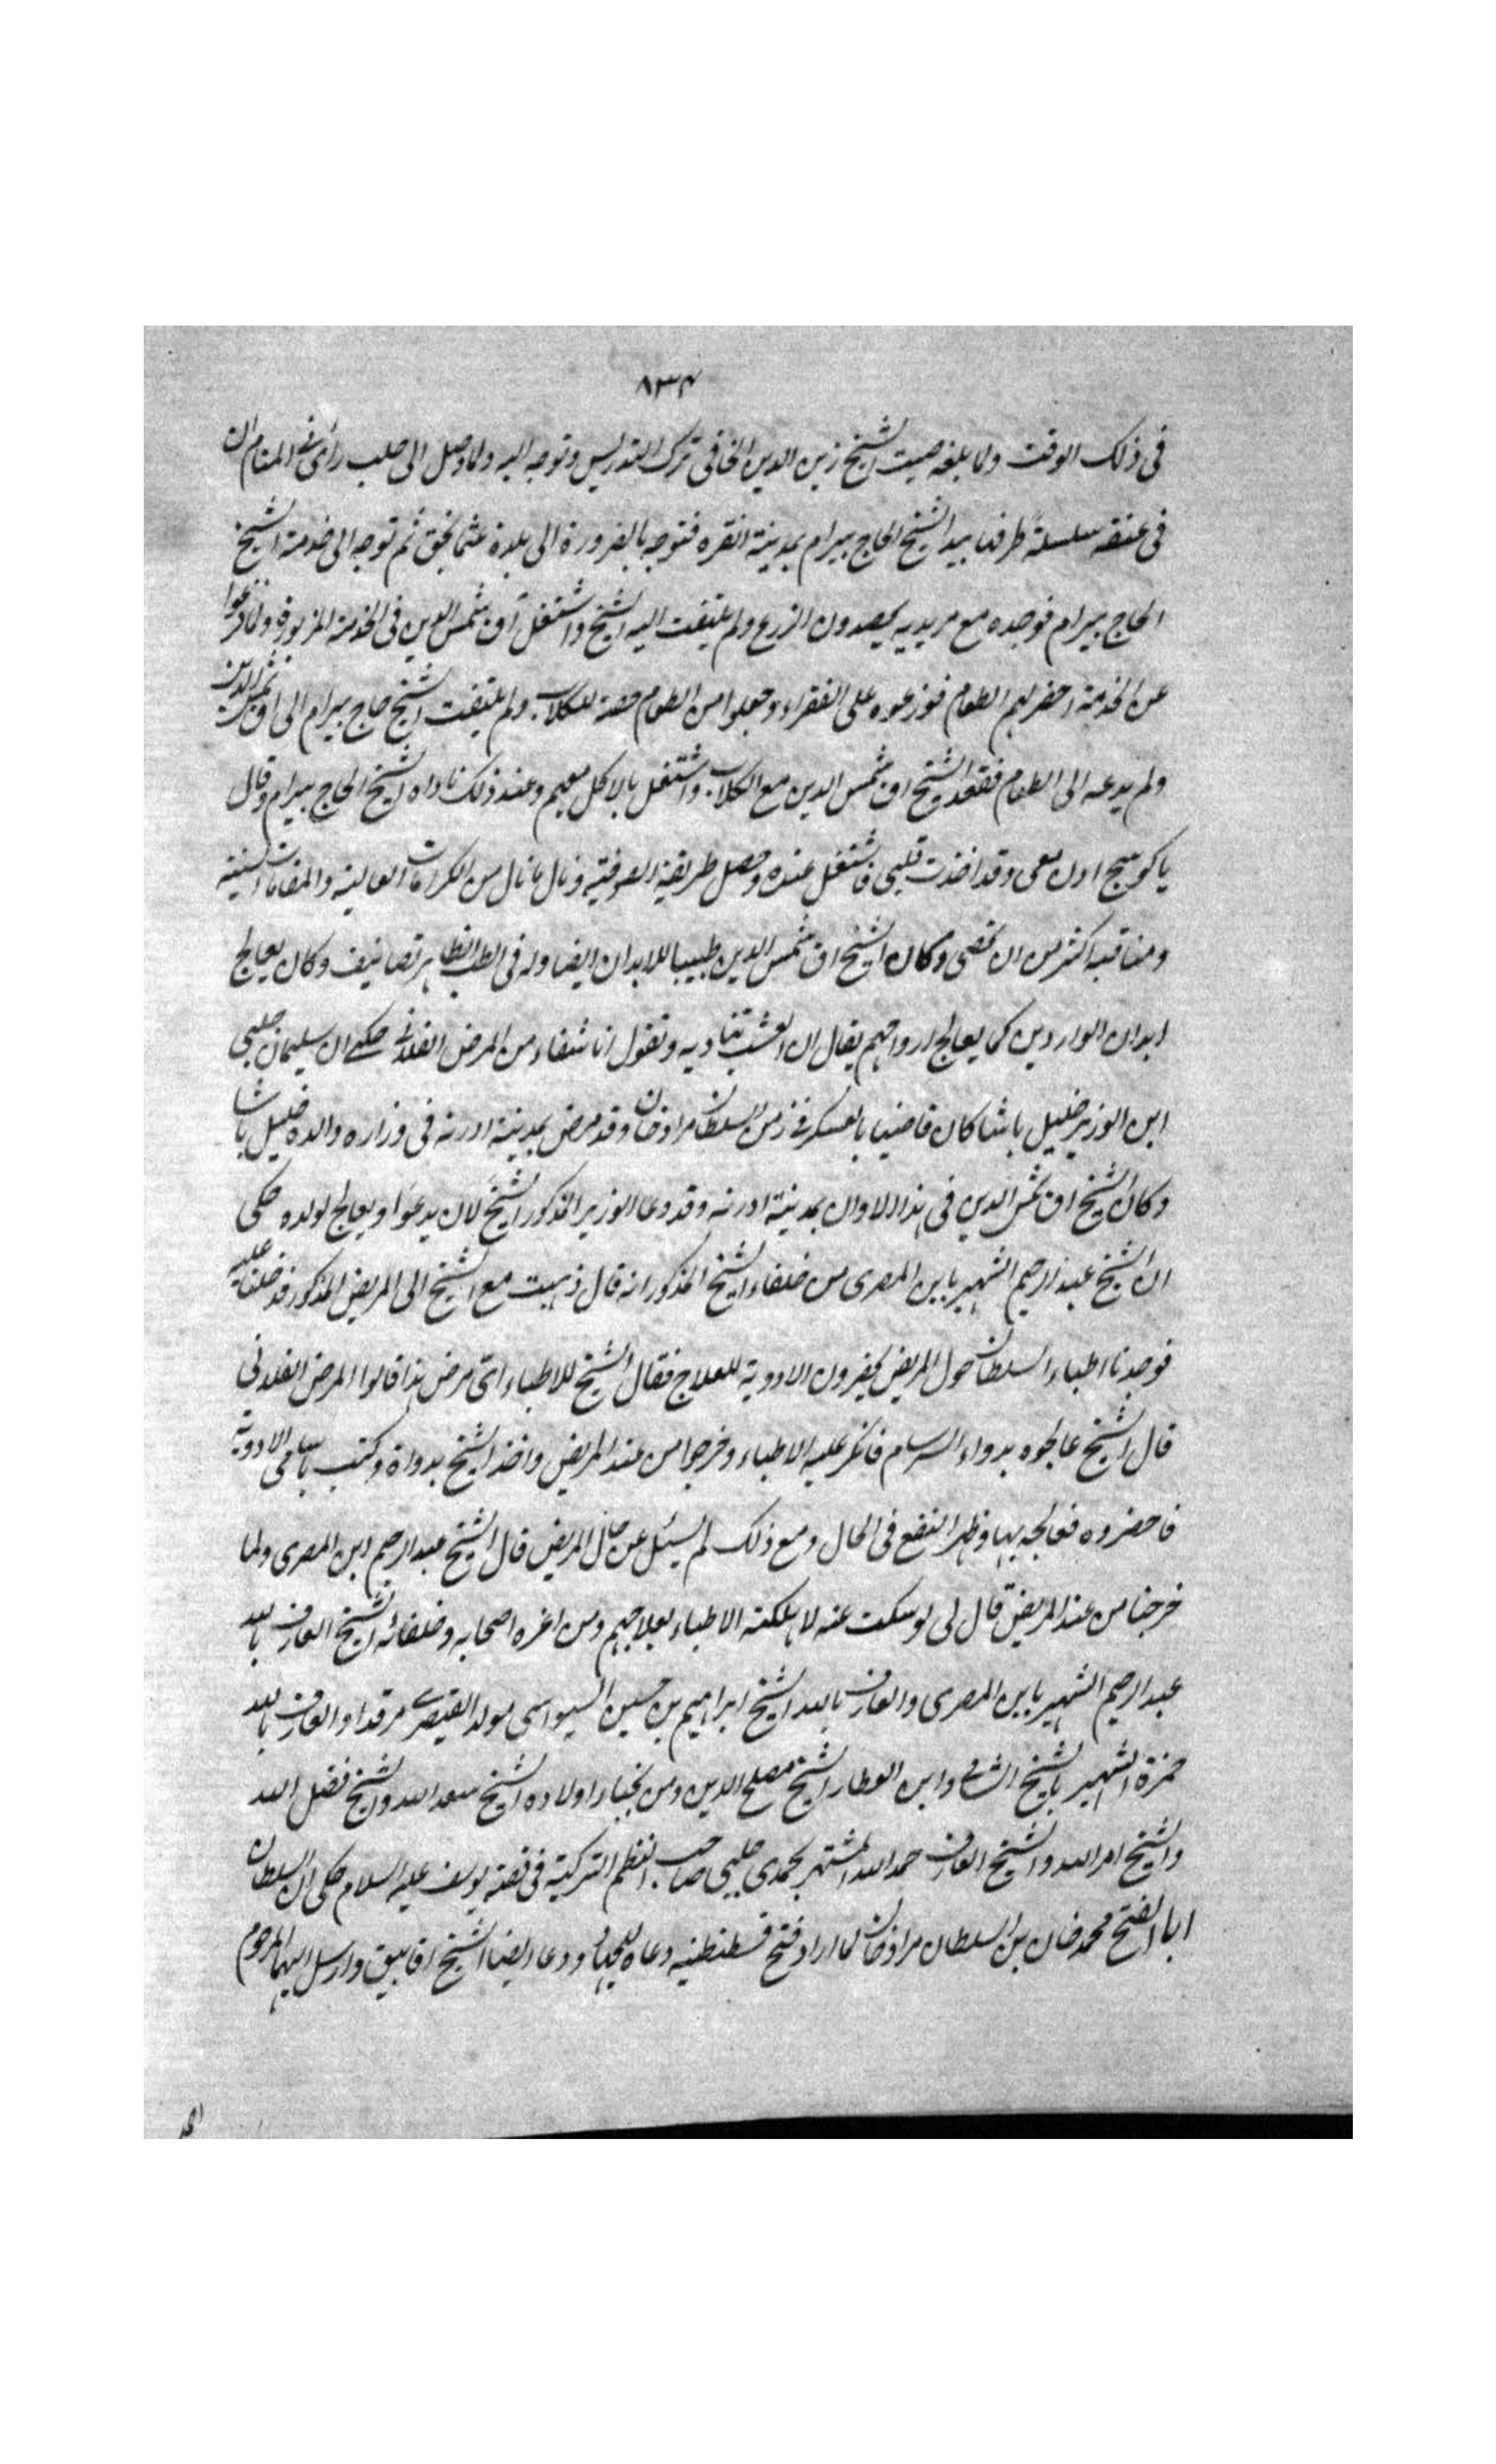 ٨٣٤
فى ذلك الوقت ولما بلغه صيت الشيخ زين الدين الخافى ترك التدريس وتوجه اليه ولما وصل الى حلب رأى فى المنام ان
فى عنقه سلسلة طرفها بيد الشيخ الحاج بيرام بمدينة انقره فتوجه بالضرورة الى بلدة عثمانجق ثم توجه الى خدمة الشيخ
الحاج بيرام فوجده مع مريديه يحصدون الزرع ولم يلتفت اليه الشيخ واشتغل آق شمس الدين فى الخدمة المزبورة ولما فرغوا
عن الخدمة احضر لهم الطعام فوزعوه على الفقراء وجعلوا من الطعام حصة للكلاب ولم يلتفت الشيخ حاج بيرام الى اق شمس الدين
ولم يدعه الى الطعام فقعد الشيخ اق شمس الدين مع الكلاب واشتغل بالاكل معهم وعند ذلك ناداه الشيخ الحاج بيرام وقال
يا كوسج ادن معى وقد اخذت قلبى فاشتغل عنده وحصل طريقة الصوفية ونال ما نال من الكرامات العالية والمقامات السنية
ومناقبه اكثر من ان تحصى وكان الشيخ اق شمس الدين طبيبا للابدان ايضا وله فى الطب الظاهر تصانيف وكان يعالج
ابدان الواردين كما يعالج ارواحهم يقال ان العشب تناديه وتقول انا شفاء من المرض الفلانى حكى ان سليمان چلبى
ابن الوزير خليل باشا كان قاضيا بالعسكر فى زمن السلطان مراد خان وقد مرض بمدينة ادرنه فى وزاره والده خليل باشا
وكان الشيخ اق شمس الدين فى هذا الاوان بمدينة ادرنه وقد دعا الوزير المذكور الشيخ لان يدعوا ويعالج لولده حكى
ان الشيخ عبد الرحيم الشهير بابن المصرى من خلفاء الشيخ المذكور انه قال ذهبت مع الشيخ الى المريض المذكور فدخلنا عليه
فوجدنا اطباء السلطان حول المريض يحضرون الادوية للعلاج فقال الشيخ للاطباء اى مرض هذا قالوا المرض الفلانى
قال الشيخ عالجوه بدواء السرسام فانكر عليه الاطباء وخرجوا من عند المريض واخذ الشيخ بدواة وكتب باسامى الادوية
فاحضروه فعالجه بها وظهر النفع فى الحال ومع ذلك لم يسئل عن حال المريض قال الشيخ عبد الرحيم ابن المصرى ولما
خرجنا من عند المريض قال لى لو سكت عنه لاهلكته الاطباء بعلاجهم ومن اعزه اصحابه وخلفائه الشيخ العارف بالله
عبد الرحيم الشهير بابن المصرى والعارف بالله الشيخ ابراهيم بن حسين السيواسى مولدا القيصرى مرقدا والعارف بالله
حمزة الشهير بالشيخ الشامى وابن العطار الشيخ مصلح الدين ومن نجباء اولاده الشيخ سعد الله والشيخ فضل الله
والشيخ امر الله والشيخ العارف حمد الله المشتهر بحمدى چلبى صاحب النظم التركية فى قصة يوسف عليه السلام حكى ان السلطان
ابا الفتح محمد خان بن السلطان مراد خان لما اراد فتح قسطنطنيه دعاه للجهاد ودعا ايضا الشيخ اقابيق وارسل اليهما المرحوم